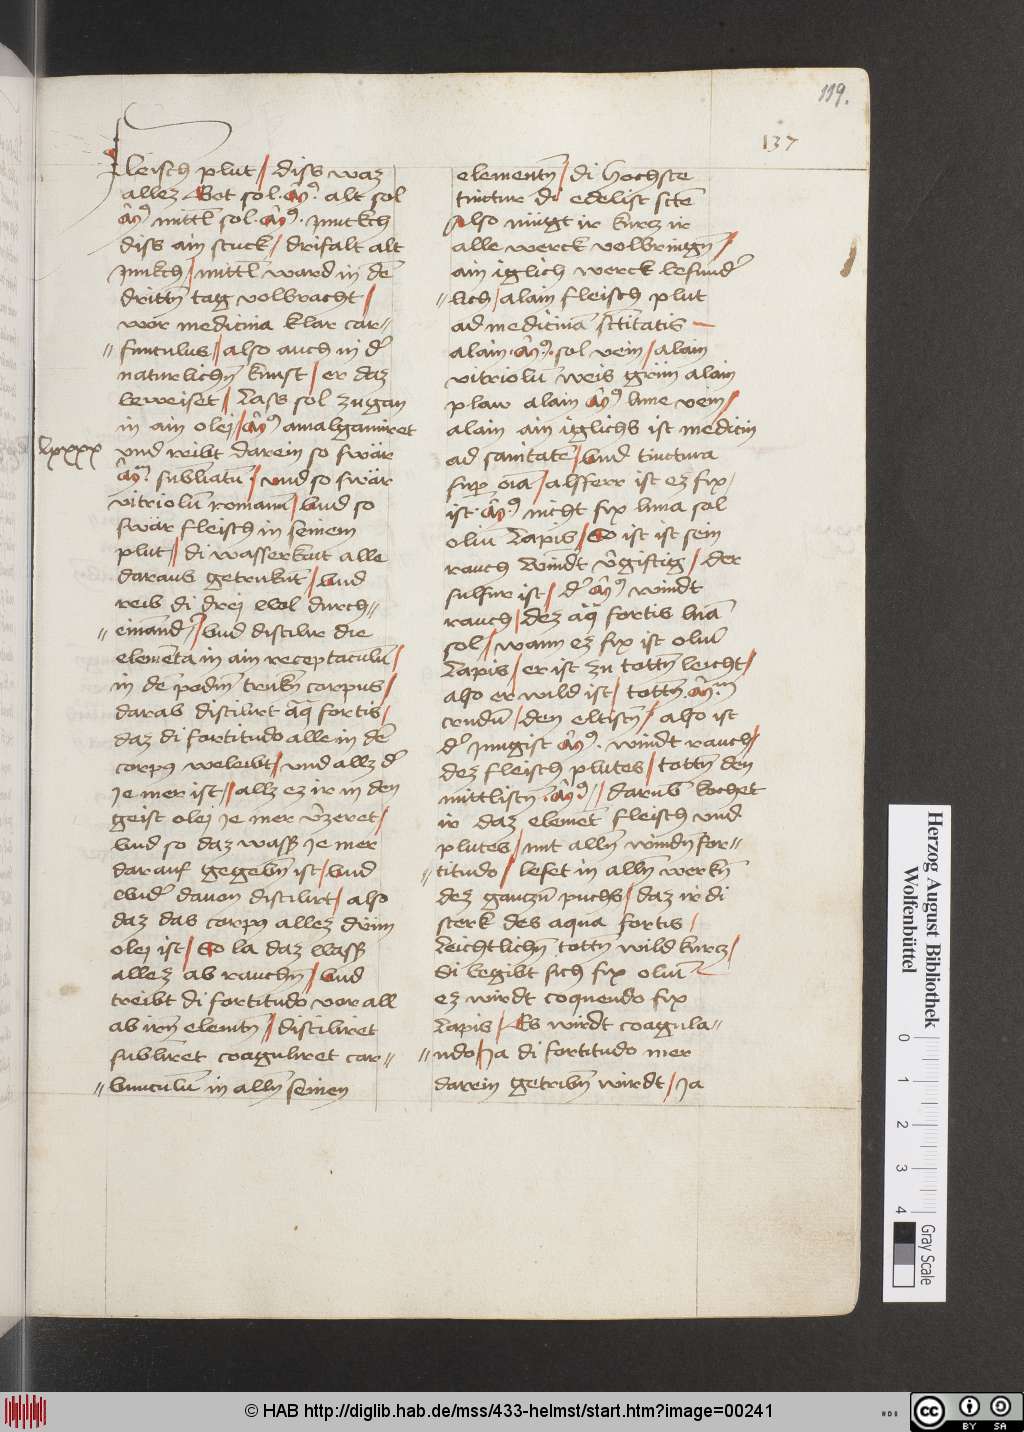 119.
137
fleisch plut / diss waz
allez Got sol · alt sol
mittl sol · junckh
diss ain stuck / drifalt alt
junkch / mittl ward in dē
drittn̄ tag volbracht /
wor medicina klar car〃
〃funculus // also auch in d᷑
naturlichn̄ kunst / er daz
beweiset / Lass sol zugan
in ain olej / amalgamiret
lxxxx
vnd reibt darein so swär
sublimatū / vnd so swär
vitriolū romanū / vnd so
swär fleisch in seinem
plut // di wasserkait alle
daraus getruknt / vnd
reib di drej wol durch〃
〃einand᷑ / vnd distilir die
elemēta in ain receptaculū /
in dē podm̄ trukn̄ corpus /
darab distilirt aq̄ fortis /
daz di fortitudo alle in dē
corpus weleibt / vnd allz d᷑
je mer ist // allz ez ir in den
geist olej je mer v᷑zeret /
vnd so daz wass᷑ je mer
darauf gegebn̄ ist / vnd
wid᷑ dauon distilirt / also
daz das corpus allez drinn
olej ist / So la daz wass᷑
allez ab rauchn̄ / vnd
treibt di fortitudo vor all
ab irn̄ elemtn̄ / distiliret
sublīret coaguliret car〃
〃bunculū in alln̄ seinen
elementn̄ / di hochste
tinctur di edelist stē
Also mūgt ir kurcz ir
alle werck volbringn̄ /
ain iglich werck besund᷑
〃lich / alain fleisch plut
ad medicinā sētitatis —
alain · sol vein / alain
vitriolū weis grün alain
plaw alain lune vein /
alain ain iglichs ist medicin
ad sanitatē / vnd tinctura
sup oīa / als ferr ist ez fix /
ist nicht fix luna sol
oliū Lapis / So ist ist sein
rauch windt v᷑giftig / der
sulfur ist / d᷑ windt
rauch / dez aq̄ fortis lunā
sol / wann ez fix ist oliū
Lapis / er ist zu tottn̄ leicht /
also er wild ist / tottn̄
crudū / den eltistn̄ / also ist
d᷑ jungist · windt rauch /
dez fleisch plutes / tottn̄ den
mittlistn̄ // darumb kochet
ir daz elemēt fleisch vnd
plutes / mit alln̄ windn̄ for〃
〃titudo / leset in alln̄ werkn̄
dez ganczn̄ puchs / daz ir di
sterk des aqua fortis /
Leichtlichn̄ tottn̄ wild kurcz /
di begibt sich fix oliū
ez wirdt coquendo fix
Lapis / Es wirdt coagula〃
〃ndo / ja di fortitudo mer
darein getribn̄ wirdt / ja
Herzog August Bibliothek
Wolfenbüttel
0
1
2
3
4
Gray Scale
© HAB http://diglib.hab.de/mss/433-helmst/start.htm?image=00241
cc BY SA